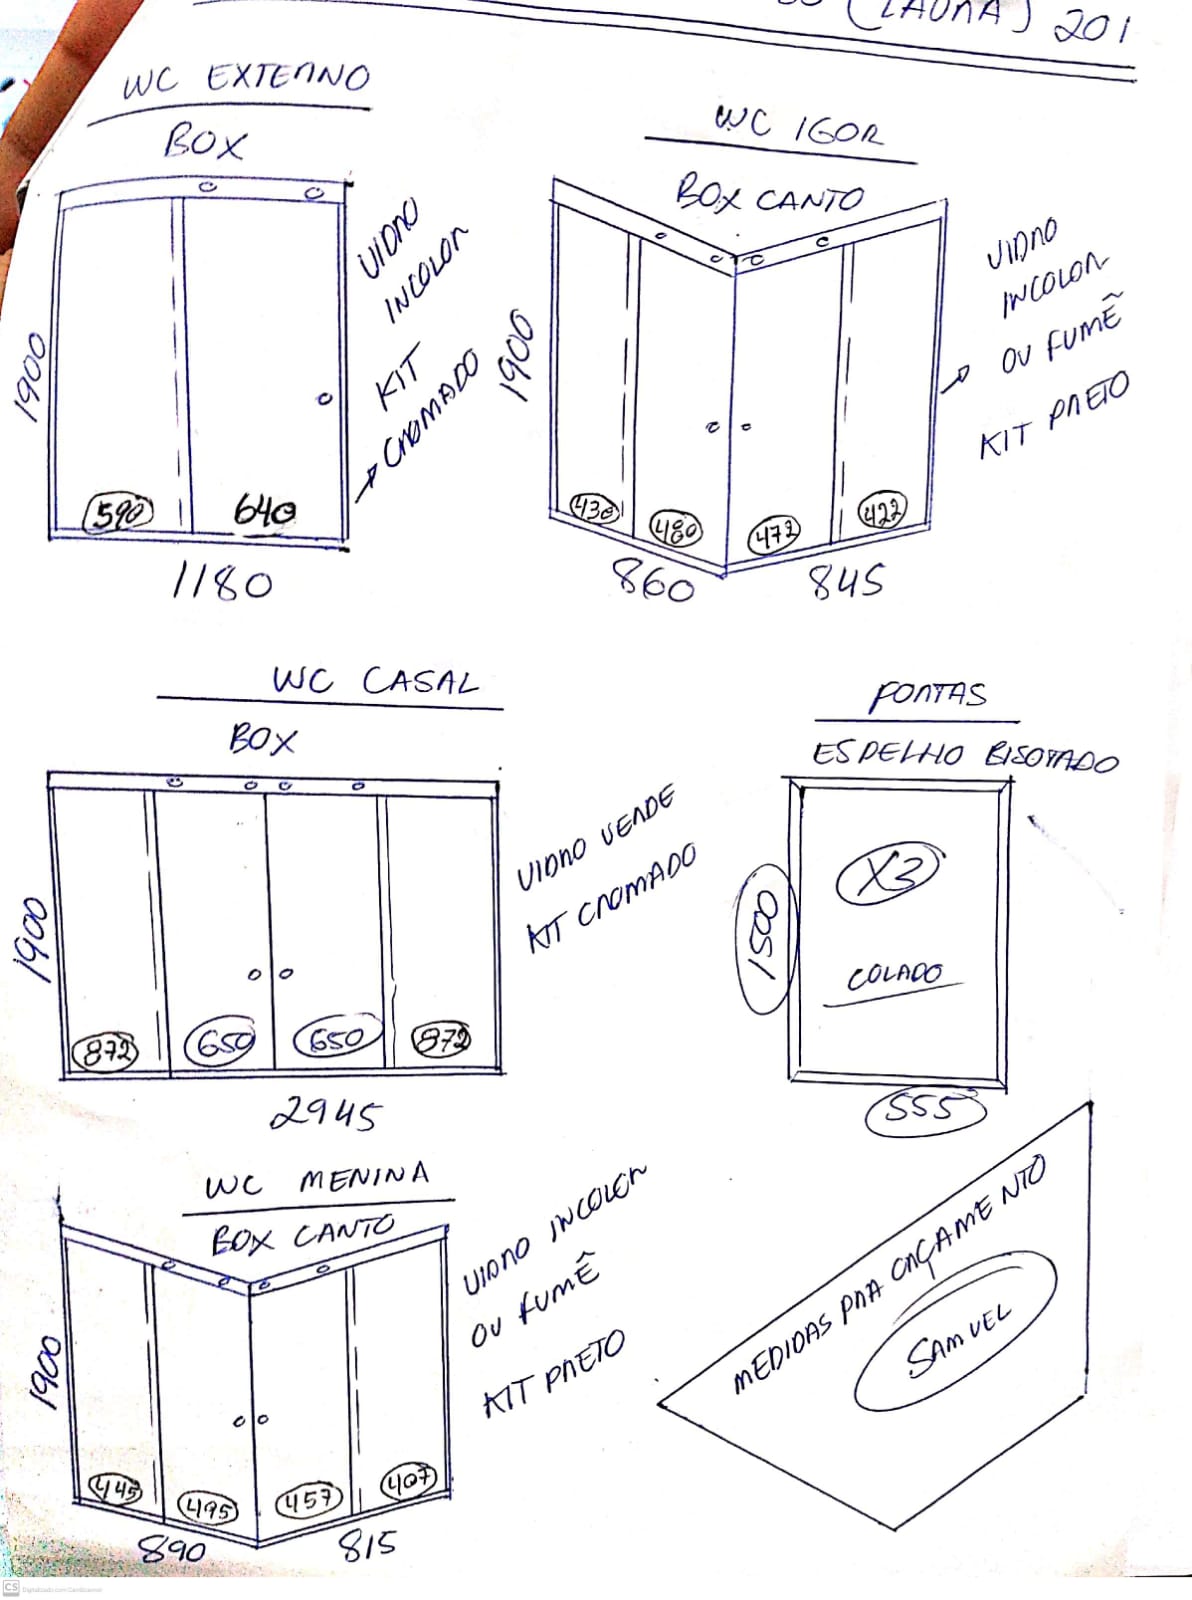 (LAURA) 201
WC EXTERNO
BOX
1900
590
640
1180
VIDRO
INCOLOR
KIT
CROMADO
WC IGOR
BOX CANTO
1900
430
480
472
422
860
845
VIDRO
INCOLOR
OU FUMÊ
KIT PRETO
WC CASAL
BOX
1900
872
650
650
872
2945
VIDRO VERDE
KIT CROMADO
PORTAS
ESPELHO BISOTADO
X3
COLADO
1500
555
WC MENINA
BOX CANTO
1900
445
495
457
407
890
815
VIDRO INCOLOR
OU FUMÊ
KIT PRETO
MEDIDAS PRA ORÇAMENTO
SAMUEL
CS Digitalizado com CamScanner